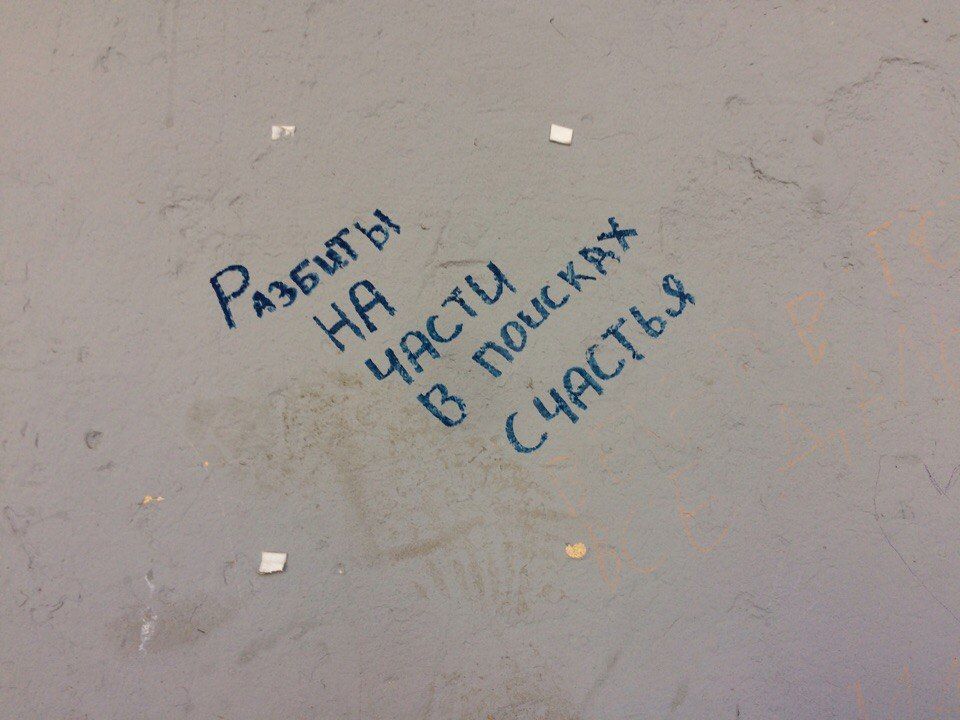 Разбиты
НА
ЧАСТИ
В ПОИСКАХ
СЧАСТЬЯ